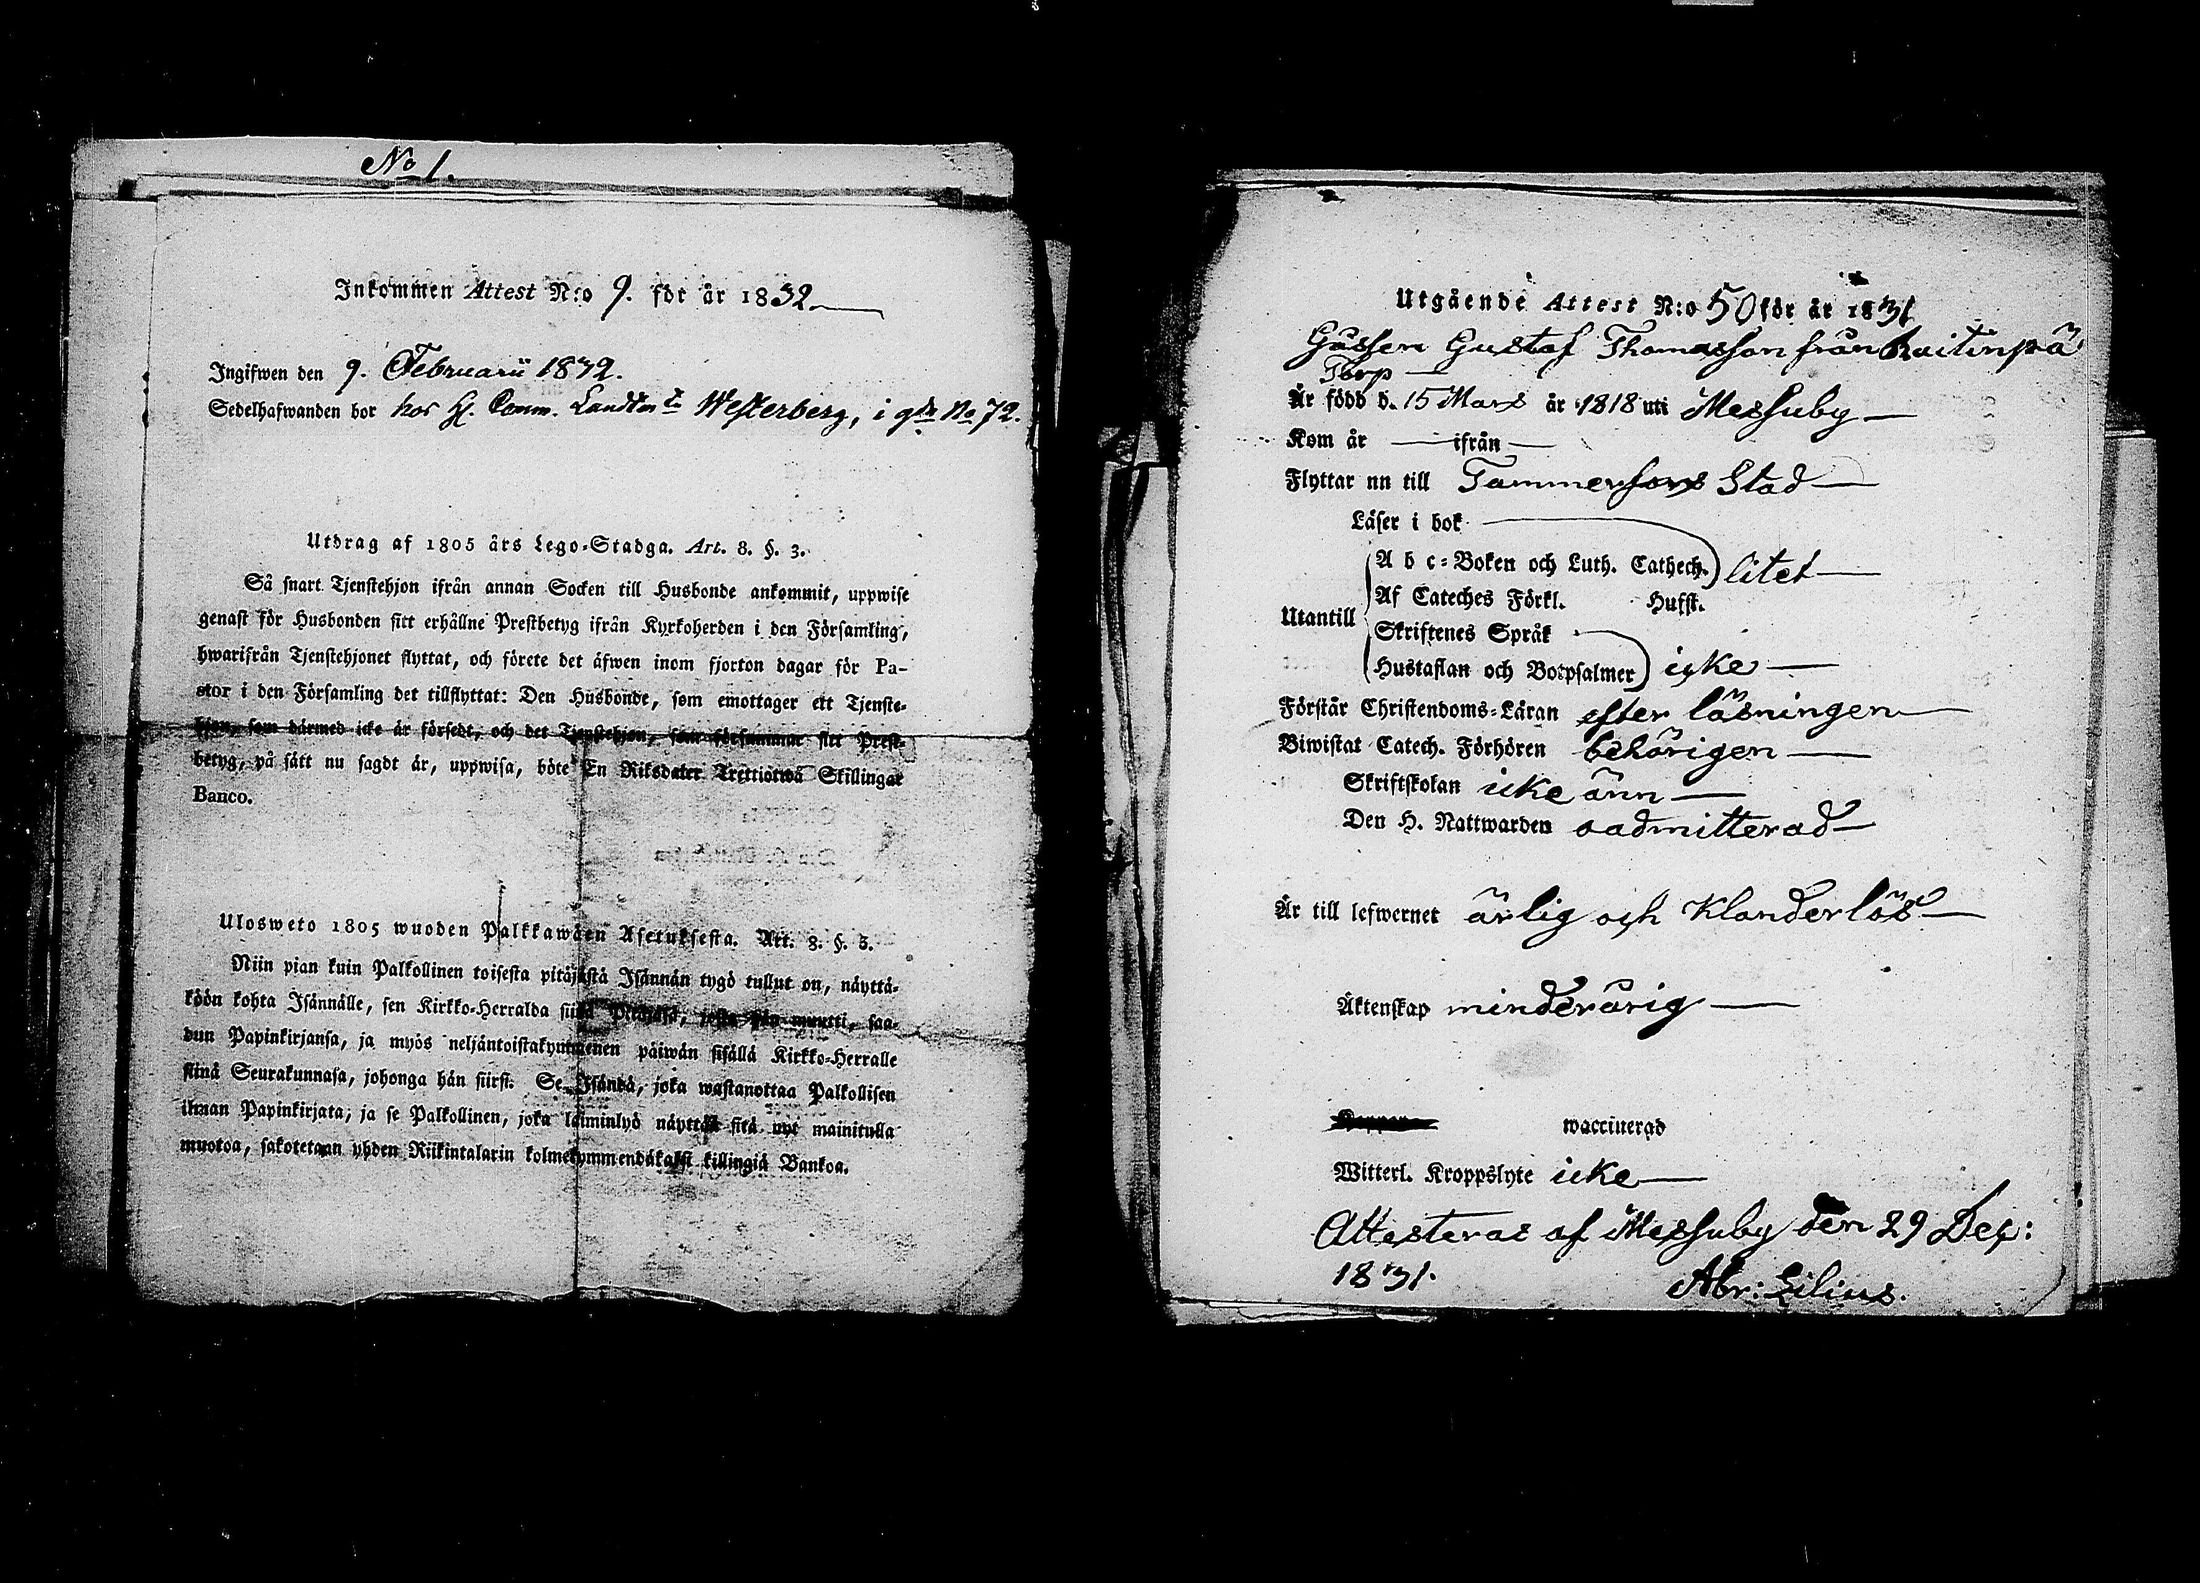 No 1.
Inkommen Attest N:o 9. för år 1832
Ingifwen den 9. Februarii 1832.
Sedelhafwanden bor hos H. Comm. Landtmt Westerberg, i gdn No 72.
Utdrag af 1805 års Lego-Stadga. Art. 8. §. 3.
Så snart Tjenstehjon ifrån annan Socken till Husbonde ankommit, uppwise
genast för Husbonden sitt erhållne Prestbetyg ifrån Kyrkoherden i den Församling,
hwarifrån Tjenstehjonet flyttat, och förete det äfwen inom fjorton dagar för Pa-
stor i den Församling det tillflyttat: Den Husbonde, som emottager ett Tjenste-
hjon, som därmed icke är försedt, och det Tjenstehjon, som försummar sitt Prest-
betyg, på sätt nu sagdt är, uppwisa, böte En Riksdaler Trettiotwå Skillingar
Banco.
Ulosweto 1805 wuoden Palkkawäen Asetuksesta. Art. 8. §. 3.
Niin pian kuin Palkollinen toisesta pitäjästä Isännän tygö tullut on, näyttä-
köön kohta Isännälle, sen Kirkko-Herralda siinä Pitäjäsä, josta hän muutti, saa-
dun Papinkirjansa, ja myös neljäntoistakymmenen päiwän sisällä Kirkko-Herralle
siinä Seurakunnasa, johonga hän siirsi. Se Isändä, joka wastanottaa Palkollisen
ilman Papinkirjata, ja se Palkollinen, joka laiminlyö näyttää sitä nyt mainitulla
muotoa, sakotetaan yhden Riikintalarin kolmekymmendäkaksi killingiä Bankoa.
Utgående Attest N:o 50 för år 1831
Gossen Gustaf Thomasson från Kaitinpä
Torp
Är född d. 15 Mars år 1818 uti Messuby
Kom år — ifrån —
Flyttar nu till Tammerfors Stad
Läser i bok
A b c-Boken och Luth. Catech. litet
Af Cateches Förkl. Husst.
Utantill
Skriftenes Språk
Hustaflan och Botpsalmer icke
Förstår Christendoms-Läran efter läsningen
Biwistat Catech. Förhören behörigen
Skriftskolan icke änn
Den H. Nattwarden oadmitterad
Är till lefwernet ärlig och klanderlös
Äktenskap minderårig
waccinerad
Witterl. Kroppslyte icke
Attesteras af Messuby den 29 Dec:
1831. Abr: Lilius.